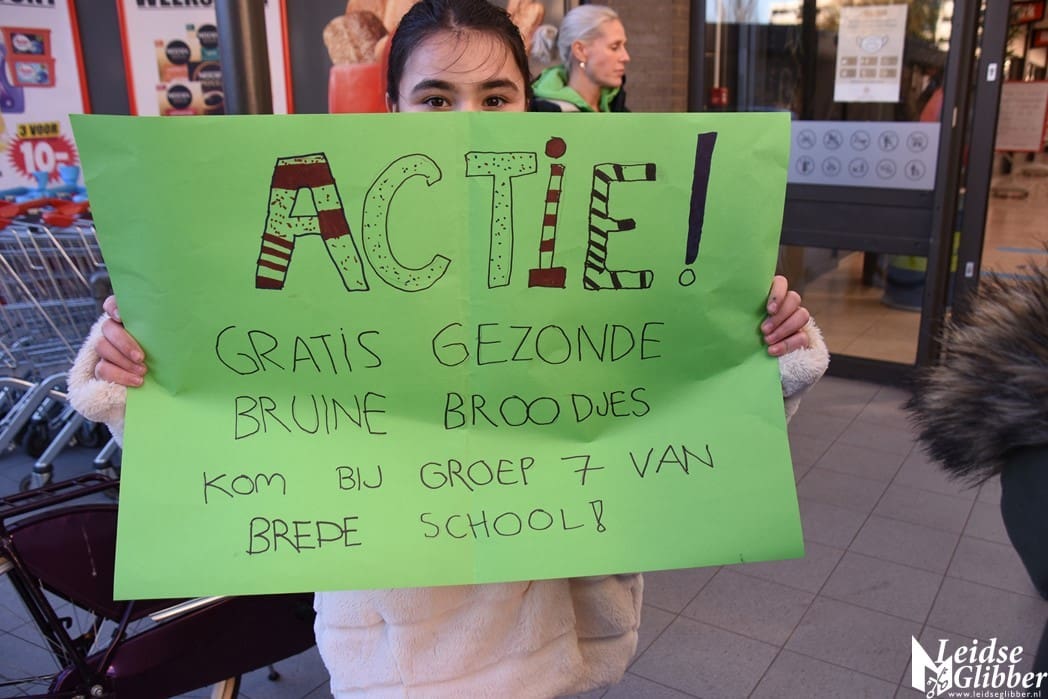 3 VOOR
10.-
ACTiE!
GRATiS GEZONDE
BRUINE BROODJES
KOM BIJ GROEP 7 VAN
BREDE SCHOOL!
Leidse
Glibber
www.leidseglibber.nl